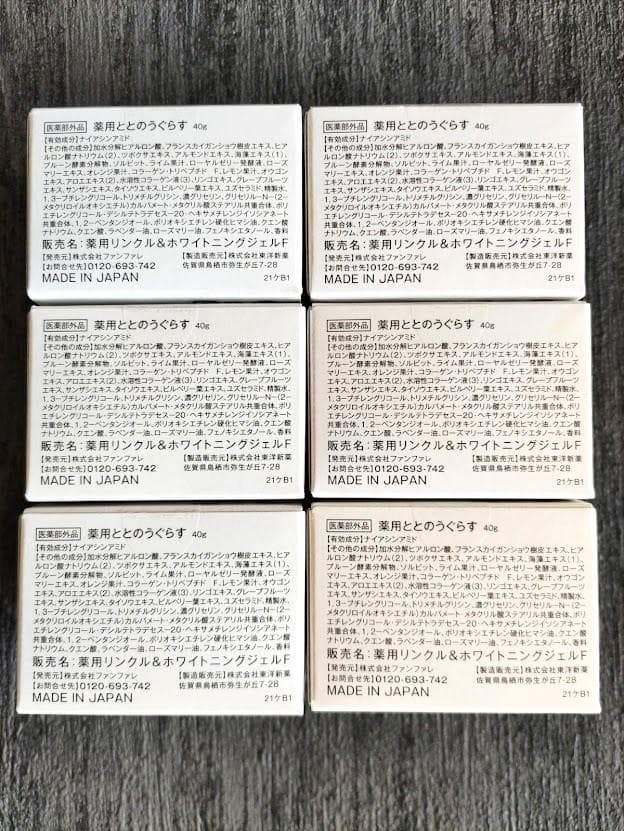 医薬部外品 薬用ととのうぐらす 40g
【有効成分】ナイアシンアミド
【その他の成分】加水分解ヒアルロン酸、フランスカイガンショウ樹皮エキス、ヒア
ルロン酸ナトリウム(2)、ツボクサエキス、アルモンドエキス、海藻エキス(1)、
プルーン酵素分解物、ソルビット、ライム果汁、ローヤルゼリー発酵液、ローズ
マリーエキス、オレンジ果汁、コラーゲン・トリペプチド F、レモン果汁、オウゴン
エキス、アロエエキス(2)、水溶性コラーゲン液(3)、リンゴエキス、グレープフルーツ
エキス、サンザシエキス、タイソウエキス、ビルベリー葉エキス、ユズセラミド、精製水、
1,3-ブチレングリコール、トリメチルグリシン、濃グリセリン、グリセリル-N-(2-
メタクリロイルオキシエチル)カルバメート・メタクリル酸ステアリル共重合体、ポリ
エチレングリコール・デシルテトラデセス-20・ヘキサメチレンジイソシアネート
共重合体、1,2-ペンタンジオール、ポリオキシエチレン硬化ヒマシ油、クエン酸
ナトリウム、クエン酸、ラベンダー油、ローズマリー油、フェノキシエタノール、香料
販売名:薬用リンクル&ホワイトニングジェルF
【発売元】株式会社ファンファレ 【製造販売元】株式会社東洋新薬
【お問合せ先】0120-693-742 佐賀県鳥栖市弥生が丘7-28
MADE IN JAPAN 21ケB1
医薬部外品 薬用ととのうぐらす 40g
【有効成分】ナイアシンアミド
【その他の成分】加水分解ヒアルロン酸、フランスカイガンショウ樹皮エキス、ヒア
ルロン酸ナトリウム(2)、ツボクサエキス、アルモンドエキス、海藻エキス(1)、
プルーン酵素分解物、ソルビット、ライム果汁、ローヤルゼリー発酵液、ローズ
マリーエキス、オレンジ果汁、コラーゲン・トリペプチド F、レモン果汁、オウゴン
エキス、アロエエキス(2)、水溶性コラーゲン液(3)、リンゴエキス、グレープフルーツ
エキス、サンザシエキス、タイソウエキス、ビルベリー葉エキス、ユズセラミド、精製水、
1,3-ブチレングリコール、トリメチルグリシン、濃グリセリン、グリセリル-N-(2-
メタクリロイルオキシエチル)カルバメート・メタクリル酸ステアリル共重合体、ポリ
エチレングリコール・デシルテトラデセス-20・ヘキサメチレンジイソシアネート
共重合体、1,2-ペンタンジオール、ポリオキシエチレン硬化ヒマシ油、クエン酸
ナトリウム、クエン酸、ラベンダー油、ローズマリー油、フェノキシエタノール、香料
販売名:薬用リンクル&ホワイトニングジェルF
【発売元】株式会社ファンファレ 【製造販売元】株式会社東洋新薬
【お問合せ先】0120-693-742 佐賀県鳥栖市弥生が丘7-28
MADE IN JAPAN 21ケB1
医薬部外品 薬用ととのうぐらす 40g
【有効成分】ナイアシンアミド
【その他の成分】加水分解ヒアルロン酸、フランスカイガンショウ樹皮エキス、ヒア
ルロン酸ナトリウム(2)、ツボクサエキス、アルモンドエキス、海藻エキス(1)、
プルーン酵素分解物、ソルビット、ライム果汁、ローヤルゼリー発酵液、ローズ
マリーエキス、オレンジ果汁、コラーゲン・トリペプチド F、レモン果汁、オウゴン
エキス、アロエエキス(2)、水溶性コラーゲン液(3)、リンゴエキス、グレープフルーツ
エキス、サンザシエキス、タイソウエキス、ビルベリー葉エキス、ユズセラミド、精製水、
1,3-ブチレングリコール、トリメチルグリシン、濃グリセリン、グリセリル-N-(2-
メタクリロイルオキシエチル)カルバメート・メタクリル酸ステアリル共重合体、ポリ
エチレングリコール・デシルテトラデセス-20・ヘキサメチレンジイソシアネート
共重合体、1,2-ペンタンジオール、ポリオキシエチレン硬化ヒマシ油、クエン酸
ナトリウム、クエン酸、ラベンダー油、ローズマリー油、フェノキシエタノール、香料
販売名:薬用リンクル&ホワイトニングジェルF
【発売元】株式会社ファンファレ 【製造販売元】株式会社東洋新薬
【お問合せ先】0120-693-742 佐賀県鳥栖市弥生が丘7-28
MADE IN JAPAN 21ケB1
医薬部外品 薬用ととのうぐらす 40g
【有効成分】ナイアシンアミド
【その他の成分】加水分解ヒアルロン酸、フランスカイガンショウ樹皮エキス、ヒア
ルロン酸ナトリウム(2)、ツボクサエキス、アルモンドエキス、海藻エキス(1)、
プルーン酵素分解物、ソルビット、ライム果汁、ローヤルゼリー発酵液、ローズ
マリーエキス、オレンジ果汁、コラーゲン・トリペプチド F、レモン果汁、オウゴン
エキス、アロエエキス(2)、水溶性コラーゲン液(3)、リンゴエキス、グレープフルーツ
エキス、サンザシエキス、タイソウエキス、ビルベリー葉エキス、ユズセラミド、精製水、
1,3-ブチレングリコール、トリメチルグリシン、濃グリセリン、グリセリル-N-(2-
メタクリロイルオキシエチル)カルバメート・メタクリル酸ステアリル共重合体、ポリ
エチレングリコール・デシルテトラデセス-20・ヘキサメチレンジイソシアネート
共重合体、1,2-ペンタンジオール、ポリオキシエチレン硬化ヒマシ油、クエン酸
ナトリウム、クエン酸、ラベンダー油、ローズマリー油、フェノキシエタノール、香料
販売名:薬用リンクル&ホワイトニングジェルF
【発売元】株式会社ファンファレ 【製造販売元】株式会社東洋新薬
【お問合せ先】0120-693-742 佐賀県鳥栖市弥生が丘7-28
MADE IN JAPAN 21ケB1
医薬部外品 薬用ととのうぐらす 40g
【有効成分】ナイアシンアミド
【その他の成分】加水分解ヒアルロン酸、フランスカイガンショウ樹皮エキス、ヒア
ルロン酸ナトリウム(2)、ツボクサエキス、アルモンドエキス、海藻エキス(1)、
プルーン酵素分解物、ソルビット、ライム果汁、ローヤルゼリー発酵液、ローズ
マリーエキス、オレンジ果汁、コラーゲン・トリペプチド F、レモン果汁、オウゴン
エキス、アロエエキス(2)、水溶性コラーゲン液(3)、リンゴエキス、グレープフルーツ
エキス、サンザシエキス、タイソウエキス、ビルベリー葉エキス、ユズセラミド、精製水、
1,3-ブチレングリコール、トリメチルグリシン、濃グリセリン、グリセリル-N-(2-
メタクリロイルオキシエチル)カルバメート・メタクリル酸ステアリル共重合体、ポリ
エチレングリコール・デシルテトラデセス-20・ヘキサメチレンジイソシアネート
共重合体、1,2-ペンタンジオール、ポリオキシエチレン硬化ヒマシ油、クエン酸
ナトリウム、クエン酸、ラベンダー油、ローズマリー油、フェノキシエタノール、香料
販売名:薬用リンクル&ホワイトニングジェルF
【発売元】株式会社ファンファレ 【製造販売元】株式会社東洋新薬
【お問合せ先】0120-693-742 佐賀県鳥栖市弥生が丘7-28
MADE IN JAPAN 21ケB1
医薬部外品 薬用ととのうぐらす 40g
【有効成分】ナイアシンアミド
【その他の成分】加水分解ヒアルロン酸、フランスカイガンショウ樹皮エキス、ヒア
ルロン酸ナトリウム(2)、ツボクサエキス、アルモンドエキス、海藻エキス(1)、
プルーン酵素分解物、ソルビット、ライム果汁、ローヤルゼリー発酵液、ローズ
マリーエキス、オレンジ果汁、コラーゲン・トリペプチド F、レモン果汁、オウゴン
エキス、アロエエキス(2)、水溶性コラーゲン液(3)、リンゴエキス、グレープフルーツ
エキス、サンザシエキス、タイソウエキス、ビルベリー葉エキス、ユズセラミド、精製水、
1,3-ブチレングリコール、トリメチルグリシン、濃グリセリン、グリセリル-N-(2-
メタクリロイルオキシエチル)カルバメート・メタクリル酸ステアリル共重合体、ポリ
エチレングリコール・デシルテトラデセス-20・ヘキサメチレンジイソシアネート
共重合体、1,2-ペンタンジオール、ポリオキシエチレン硬化ヒマシ油、クエン酸
ナトリウム、クエン酸、ラベンダー油、ローズマリー油、フェノキシエタノール、香料
販売名:薬用リンクル&ホワイトニングジェルF
【発売元】株式会社ファンファレ 【製造販売元】株式会社東洋新薬
【お問合せ先】0120-693-742 佐賀県鳥栖市弥生が丘7-28
MADE IN JAPAN 21ケB1